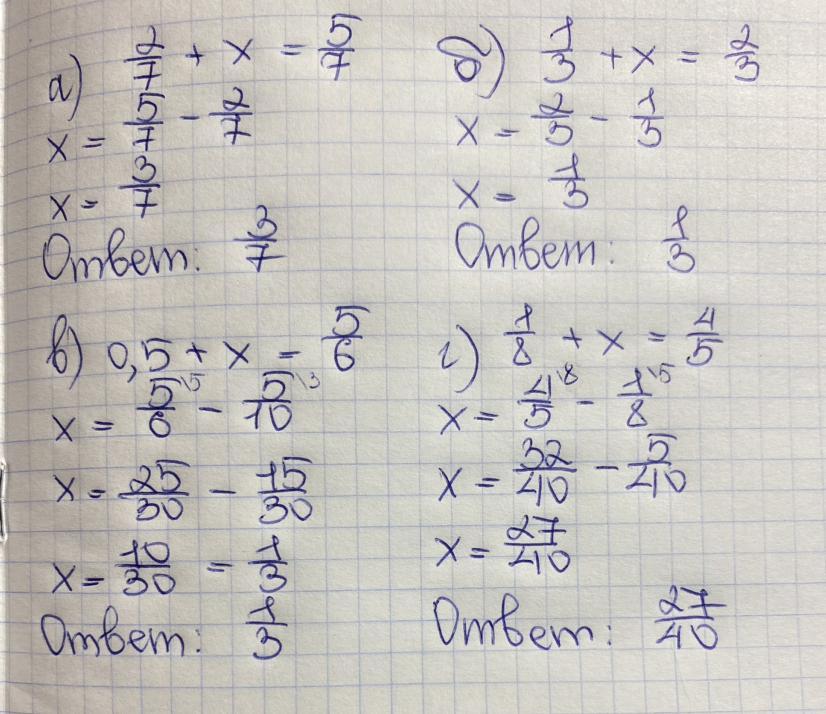 а) 2/7 + x = 5/7
x = 5/7 - 2/7
x = 3/7
Ответ: 3/7
б) 1/3 + x = 2/3
x = 2/3 - 1/3
x = 1/3
Ответ: 1/3
в) 0,5 + x = 5/6
x = 5/6 \5 - 5/10 \3
x = 25/30 - 15/30
x = 10/30 = 1/3
Ответ: 1/3
г) 1/8 + x = 4/5
x = 4/5 \8 - 1/8 \5
x = 32/40 - 5/40
x = 27/40
Ответ: 27/40